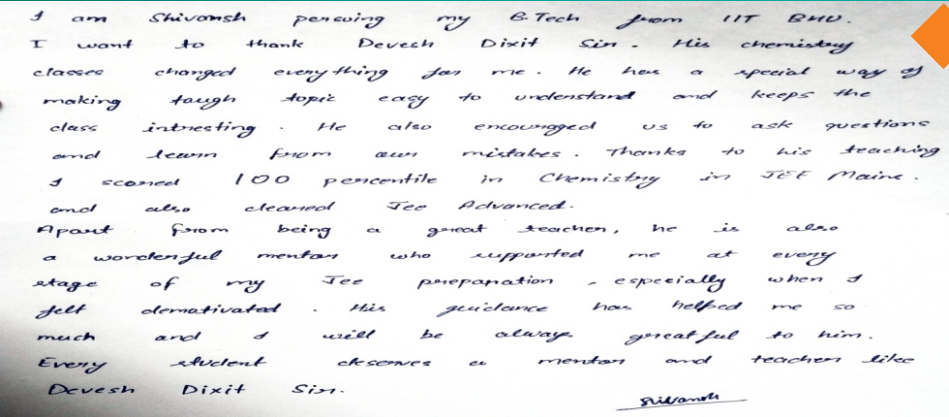 I am Shivansh persuing my B.Tech from IIT BHU.
I want to thank Devesh Dixit Sir. His chemistry
classes changed everything for me. He has a special way of
making tough topic easy to understand and keeps the
class intresting. He also encouraged us to ask questions
and learn from our mistakes. Thanks to his teaching
I scored 100 percentile in Chemistry in JEE Mains.
and also cleared Jee Advanced.
Apart from being a great teacher, he is also
a wonderful mentor who supported me at every
stage of my Jee preparation, especially when I
felt demotivated. His guidance has helped me so
much and I will be always greatful to him.
Every student deserves a mentor and teacher like
Devesh Dixit Sir.
Shivansh